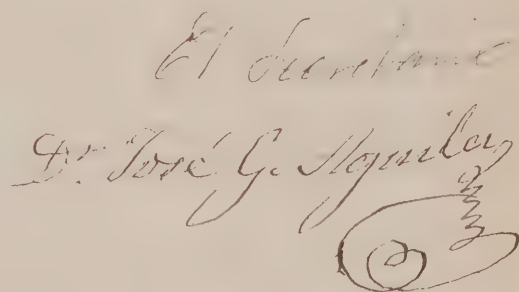 El Secretario
Dr. José G. Aguilar